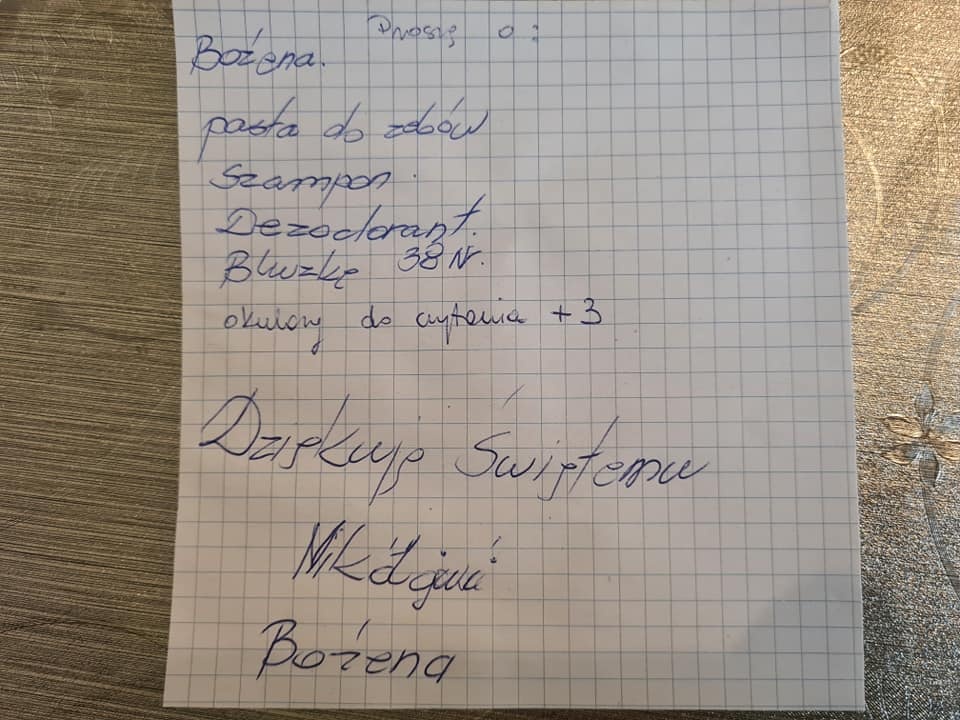 Proszę o:
Bożena.
pasta do zdbów
Szampon.
Dezodorant.
Bluzkę 38 Nr.
okulary do czytania +3
Dziękuję Świętemu
Bożena